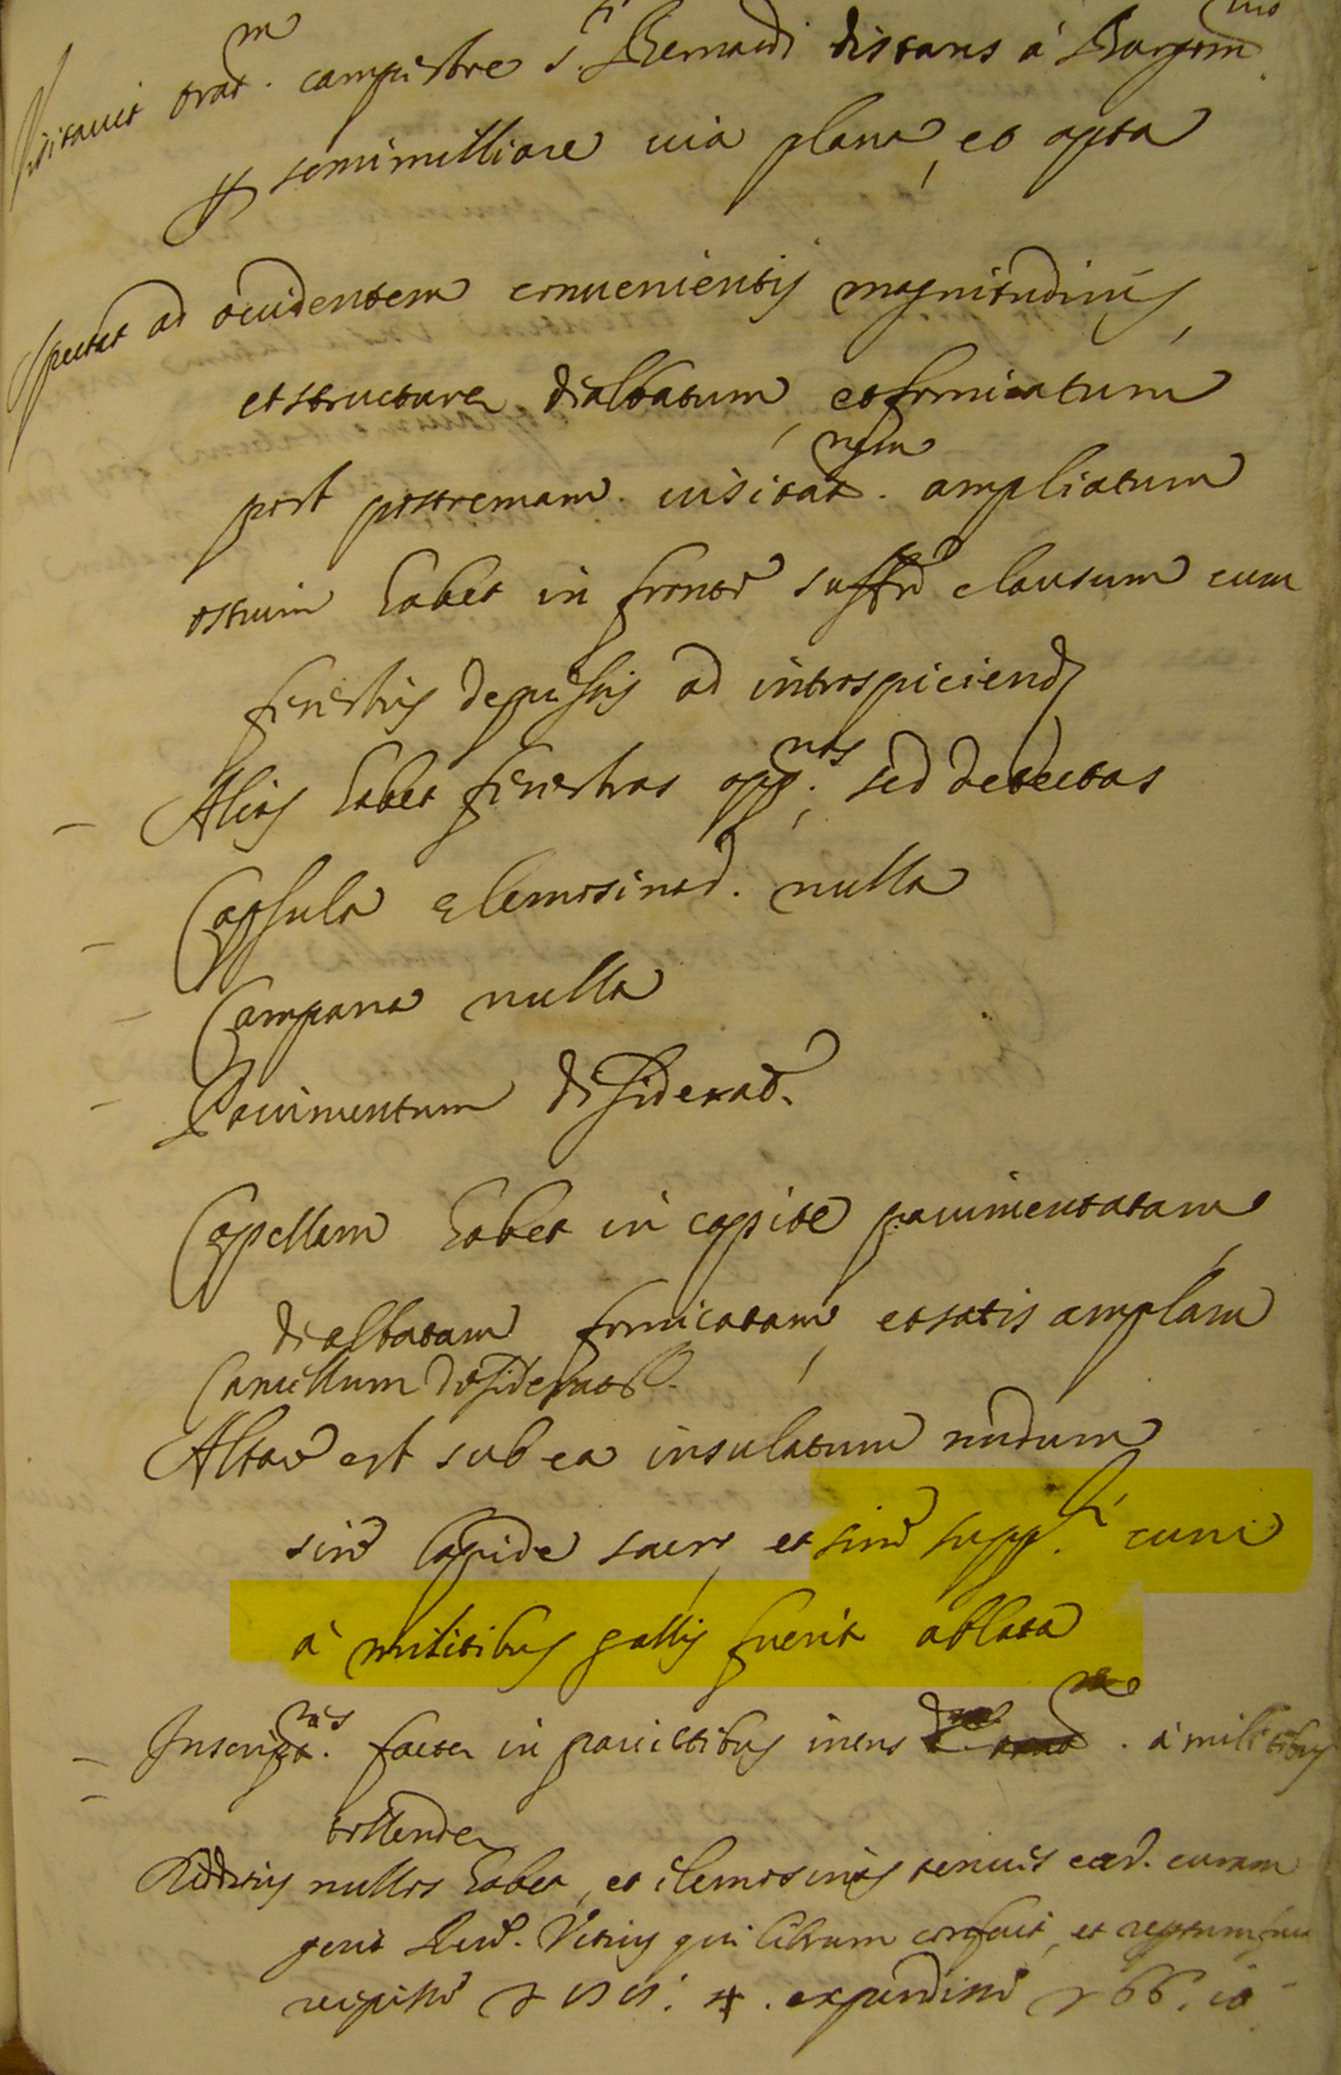 Visitavit orat.m campestre S.ti Bernardi distans à Burgom.rio
semimilliare via plana, et apta
Spectat ad occidentem convenientis magnitudinis,
et structure dealbatum, et fornicatum
post postremam visitat.nem ampliatum
ostium habet in fronte clausum cum
fenestris depressis ad introspiciend.
Alias habet fenestras opp.nas, sed detectas
Capsula elemosinar. nulla
Campana nulla
Pavimentum desiderat.
Capellam habet in capite pavimentatam,
dealbatam fornicatam, et satis amplam
Cancellum desiderat.
Altare est sub ea insulatum nudum
sine lapide sacro, et sine supp.li cum
à militibus gallis fuerit ablata
Inscript.nes facte in parietibus à militibus
tollende
Redditus nullos habet, et elemosinas tenues ead. curam
gerit Rev. qui librum confecit, et
recepisse expendisse 66. 10